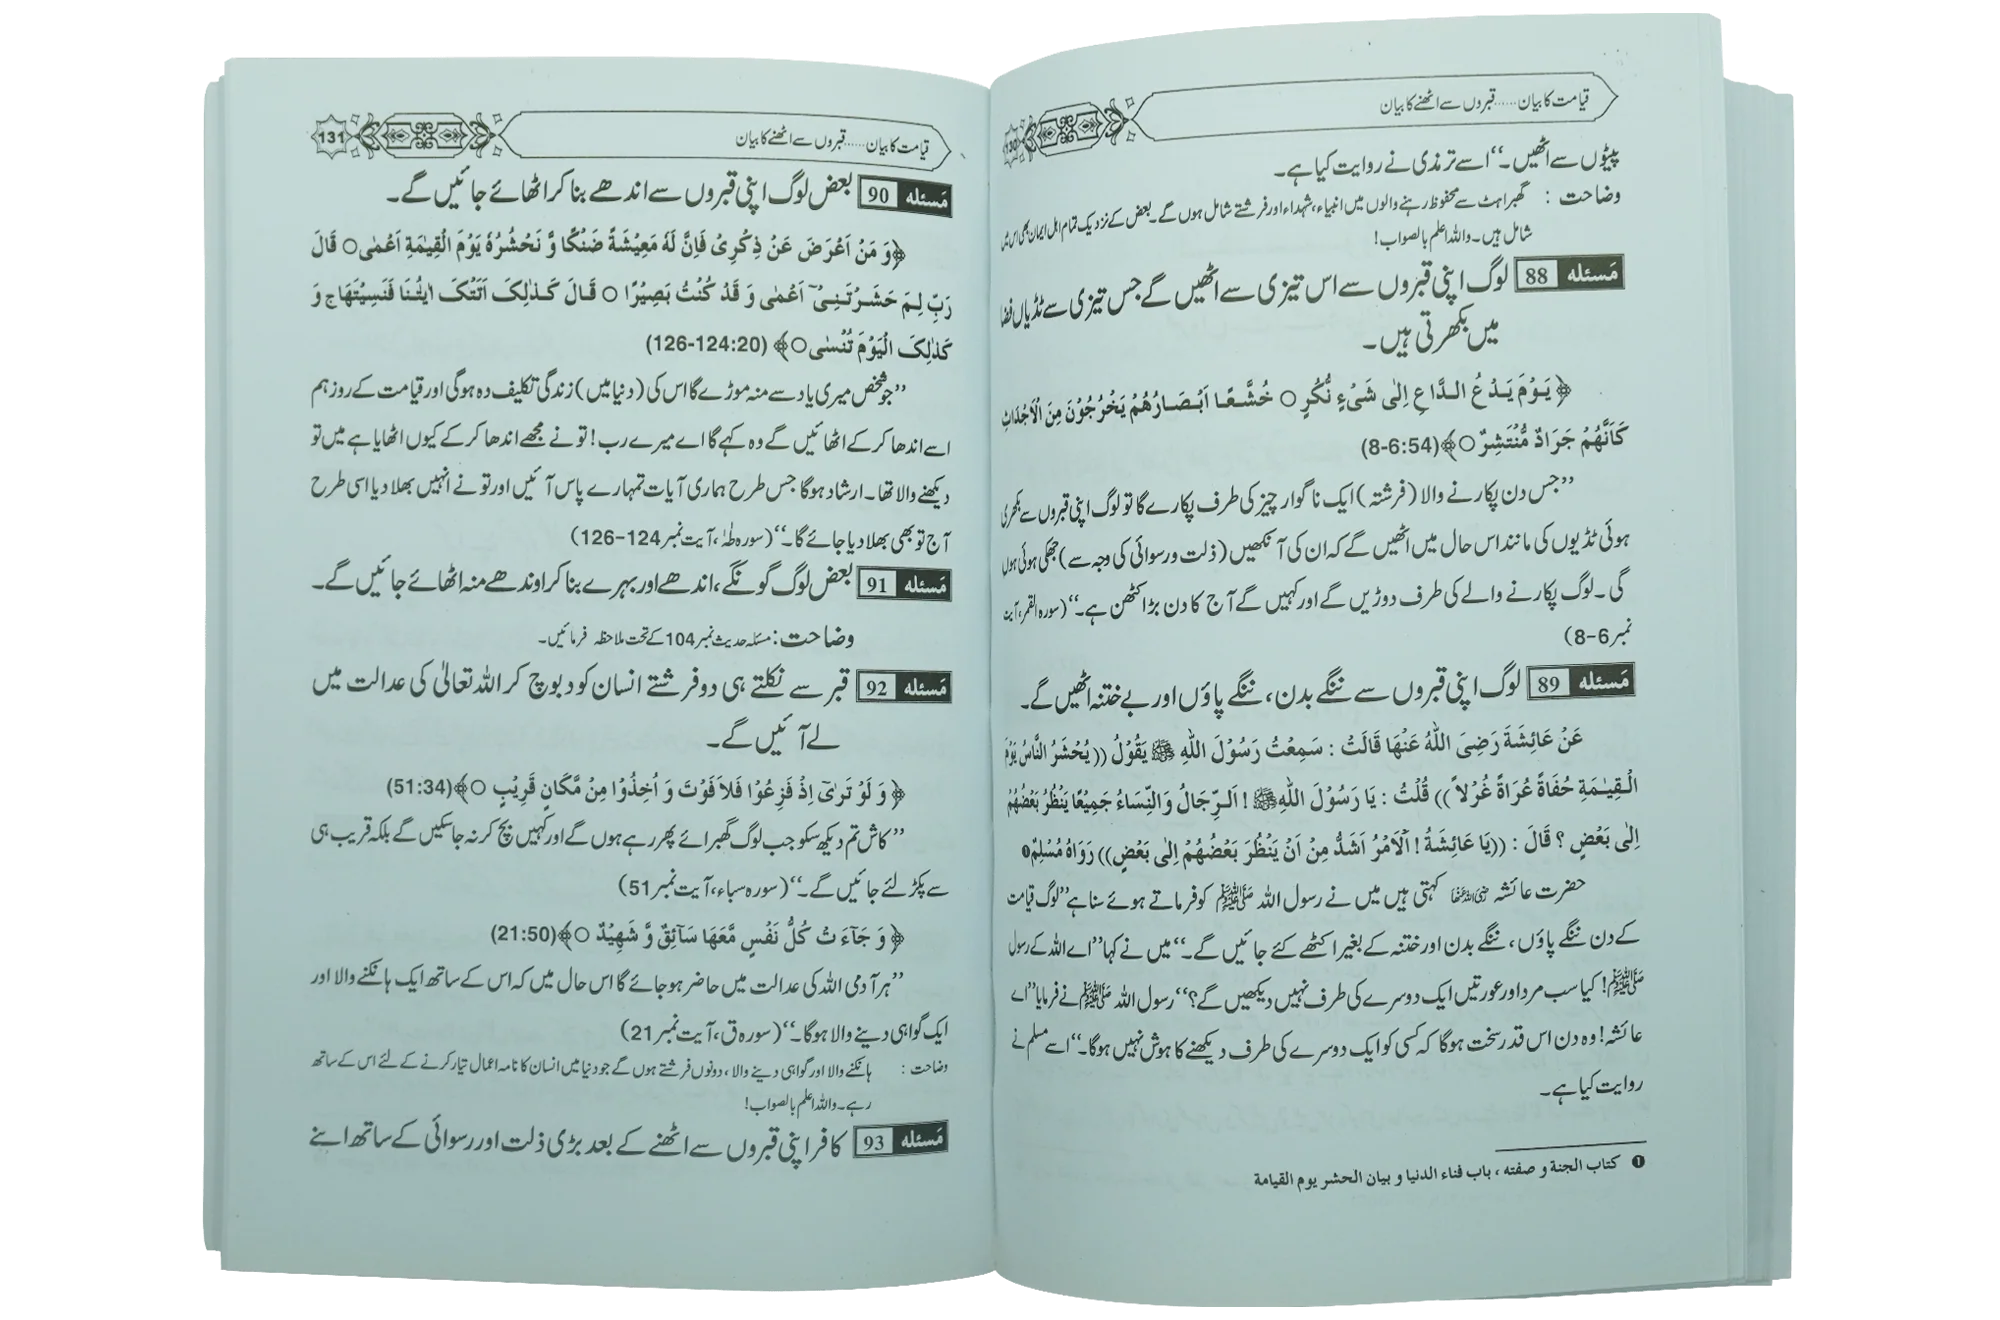 قیامت کا بیان ...... قبروں سے اٹھنے کا بیان
130
پیٹوں سے اٹھیں۔‘‘ اسے ترمذی نے روایت کیا ہے۔
وضاحت : گھبراہٹ سے محفوظ رہنے والوں میں انبیاء، شہداء اور فرشتے شامل ہوں گے۔ بعض کے نزدیک تمام اہل ایمان بھی اس میں
شامل ہیں۔ واللہ اعلم بالصواب!
مَسئلہ 88 لوگ اپنی قبروں سے اس تیزی سے اٹھیں گے جس تیزی سے ٹڈیاں فضا
میں بکھرتی ہیں۔
﴿ يَوْمَ يَدْعُ الدَّاعِ اِلٰى شَىْءٍ نُّكُرٍ ○ خُشَّعًا اَبْصَارُهُمْ يَخْرُجُوْنَ مِنَ الْاَجْدَاثِ
كَاَنَّهُمْ جَرَادٌ مُّنْتَشِرٌ ○﴾ (8-6:54)
’’جس دن پکارنے والا (فرشتہ) ایک ناگوار چیز کی طرف پکارے گا تو لوگ اپنی قبروں سے بکھری
ہوئی ٹڈیوں کی مانند اس حال میں اٹھیں گے کہ ان کی آنکھیں (ذلت ورسوائی کی وجہ سے) جھکی ہوئی ہوں
گی۔ لوگ پکارنے والے کی طرف دوڑیں گے اور کہیں گے آج کا دن بڑا کٹھن ہے۔‘‘ (سورہ القمر، آیت
نمبر 6-8)
مَسئلہ 89 لوگ اپنی قبروں سے ننگے بدن، ننگے پاؤں اور بے ختنہ اٹھیں گے۔
عَنْ عَائِشَةَ رَضِىَ اللّٰهُ عَنْهَا قَالَتْ : سَمِعْتُ رَسُوْلَ اللّٰهِ ﷺ يَقُوْلُ ((يُحْشَرُ النَّاسُ يَوْمَ
الْقِيٰمَةِ حُفَاةً عُرَاةً غُرْلاً )) قُلْتُ : يَا رَسُوْلَ اللّٰهِ ﷺ ! اَلرِّجَالُ وَالنِّسَاءُ جَمِيْعًا يَنْظُرُ بَعْضُهُمْ
اِلٰى بَعْضٍ ؟ قَالَ : ((يَا عَائِشَةُ ! اَلْاَمْرُ اَشَدُّ مِنْ اَنْ يَنْظُرَ بَعْضُهُمْ اِلٰى بَعْضٍ)) رَوَاهُ مُسْلِمٌ ❶
حضرت عائشہ رضی اللہ عنہا کہتی ہیں میں نے رسول اللہ ﷺ کو فرماتے ہوئے سنا ہے ’’لوگ قیامت
کے دن ننگے پاؤں، ننگے بدن اور ختنہ کے بغیر اکٹھے کئے جائیں گے۔‘‘ میں نے کہا ’’اے اللہ کے رسول
ﷺ! کیا سب مرد اور عورتیں ایک دوسرے کی طرف نہیں دیکھیں گے؟‘‘ رسول اللہ ﷺ نے فرمایا ’’اے
عائشہ! وہ دن اس قدر سخت ہوگا کہ کسی کو ایک دوسرے کی طرف دیکھنے کا ہوش نہیں ہوگا۔‘‘ اسے مسلم نے
روایت کیا ہے۔
❶ کتاب الجنة و صفته ، باب فناء الدنیا و بیان الحشر یوم القیامة
قیامت کا بیان ...... قبروں سے اٹھنے کا بیان
131
مَسئلہ 90 بعض لوگ اپنی قبروں سے اندھے بنا کر اٹھائے جائیں گے۔
﴿وَ مَنْ اَعْرَضَ عَنْ ذِكْرِىْ فَاِنَّ لَهٗ مَعِيْشَةً ضَنْكًا وَّ نَحْشُرُهٗ يَوْمَ الْقِيٰمَةِ اَعْمٰى ○ قَالَ
رَبِّ لِمَ حَشَرْتَنِىْٓ اَعْمٰى وَ قَدْ كُنْتُ بَصِيْرًا ○ قَالَ كَذٰلِكَ اَتَتْكَ اٰيٰتُنَا فَنَسِيْتَهَا ج وَ
كَذٰلِكَ الْيَوْمَ تُنْسٰى ○﴾ (126-124:20)
’’جو شخص میری یاد سے منہ موڑے گا اس کی (دنیا میں) زندگی تکلیف دہ ہوگی اور قیامت کے روز ہم
اسے اندھا کر کے اٹھائیں گے وہ کہے گا اے میرے رب! تو نے مجھے اندھا کر کے کیوں اٹھایا ہے میں تو
دیکھنے والا تھا۔ ارشاد ہوگا جس طرح ہماری آیات تمہارے پاس آئیں اور تو نے انہیں بھلا دیا اسی طرح
آج تو بھی بھلا دیا جائے گا۔‘‘ (سورہ طٰہٰ، آیت نمبر 124-126)
مَسئلہ 91 بعض لوگ گونگے، اندھے اور بہرے بنا کر اوندھے منہ اٹھائے جائیں گے۔
وضاحت: مسئلہ حدیث نمبر 104 کے تحت ملاحظہ فرمائیں۔
مَسئلہ 92 قبر سے نکلتے ہی دو فرشتے انسان کو دبوچ کر اللہ تعالیٰ کی عدالت میں
لے آئیں گے۔
﴿ وَ لَوْ تَرٰىٓ اِذْ فَزِعُوْا فَلاَ فَوْتَ وَ اُخِذُوْا مِنْ مَّكَانٍ قَرِيْبٍ ○﴾ (51:34)
’’کاش تم دیکھ سکو جب لوگ گھبرائے پھر رہے ہوں گے اور کہیں بچ کر نہ جا سکیں گے بلکہ قریب ہی
سے پکڑ لئے جائیں گے۔‘‘ (سورہ سباء، آیت نمبر 51)
﴿ وَ جَآءَتْ كُلُّ نَفْسٍ مَّعَهَا سَآئِقٌ وَّ شَهِيْدٌ ○﴾ (21:50)
’’ہر آدمی اللہ کی عدالت میں حاضر ہو جائے گا اس حال میں کہ اس کے ساتھ ایک ہانکنے والا اور
ایک گواہی دینے والا ہوگا۔‘‘ (سورہ ق، آیت نمبر 21)
وضاحت : ہانکنے والا اور گواہی دینے والا، دونوں فرشتے ہوں گے جو دنیا میں انسان کا نامہ اعمال تیار کرنے کے لئے اس کے ساتھ
رہے۔ واللہ اعلم بالصواب!
مَسئلہ 93 کافر اپنی قبروں سے اٹھنے کے بعد بڑی ذلت اور رسوائی کے ساتھ اپنے